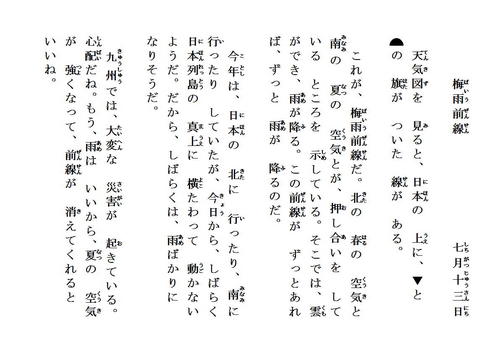 梅雨前線　七月十三日
天気図を 見ると、日本の 上に、▼と
◗の 旗が ついた 線が ある。
これが、梅雨前線だ。北の 春の 空気と
南の 夏の 空気とが、押し合いを して
いる ところを 示している。そこでは、雲
ができ、雨が降る。この前線が ずっとあれ
ば、ずっと 雨が 降るのだ。
今年は、日本の 北に 行ったり、南に
行ったり していたが、今日から、しばらく
日本列島の 真上に 横たわって 動かない
ようだ。だから、しばらくは、雨ばかりに
なりそうだ。
九州では、大変な 災害が 起きている。
心配だね。もう、雨は いいから、夏の 空気
が 強くなって、前線が 消えてくれると
いいね。